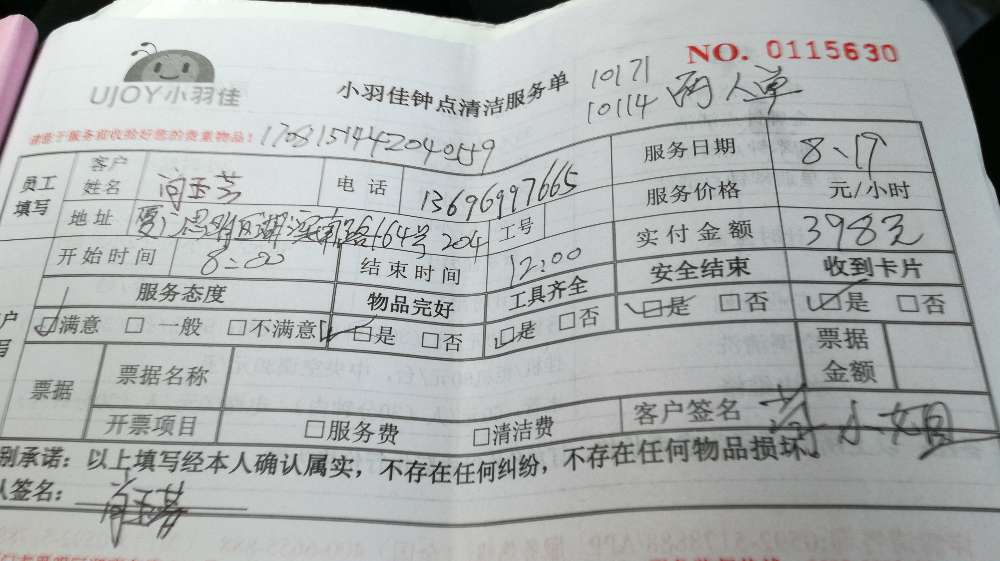 NO. 0115630
UJOY小羽佳
小羽佳钟点清洁服务单
10171
10114 两人单
请您于服务前收拾好您的贵重物品！
员工填写 客户姓名 肖玉芳 电话 13696997665 服务日期 8、19
服务价格 元/小时
地址 厦门思明区湖滨南路164号204 工号 实付金额 398元
开始时间 8:00 结束时间 12:00 安全结束 收到卡片
服务态度 物品完好 工具齐全 是 否 是 否
满意 一般 不满意 是 否 是 否
票据 票据名称 票据金额
开票项目 服务费 清洁费 客户签名 小姐
别承诺：以上填写经本人确认属实，不存在任何纠纷，不存在任何物品损坏
人签名：